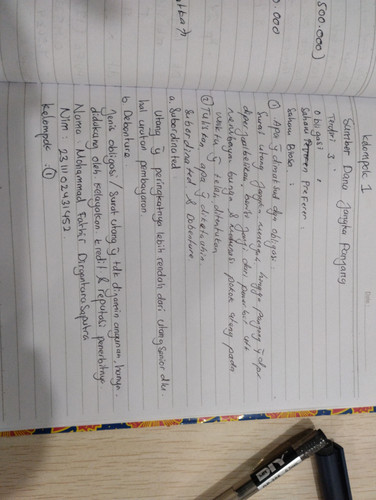 kelompok 1
Sumber Dana Jangka Panjang
Terdiri 3 :
Obligasi
Saham Preferen
Saham Biasa
① Apa yg dimaksud dgn obligasi.
Surat utang jangka menengah hingga panjang yg dpt
diperjualbelikan, berisi janji dari penerbit utk
membayar bunga & pokok utang pada
waktu yg telah ditentukan
② Tuliskan apa yg diketahui
Subordinated & Debenture
a. Subordinated
Utang yg peringkatnya lebih rendah dari utang senior dlm
hal urutan pembayaran
b. Debenture
Jenis obligasi / surat utang yg tdk dijamin hanya
didukung oleh kelayakan kredit & reputasi penerbitnya
Nama : Mohammad Fakhir Dirgantara Saputra
Nim : 231110 2431452
kelompok : ①
500.000)
0.000
DIY